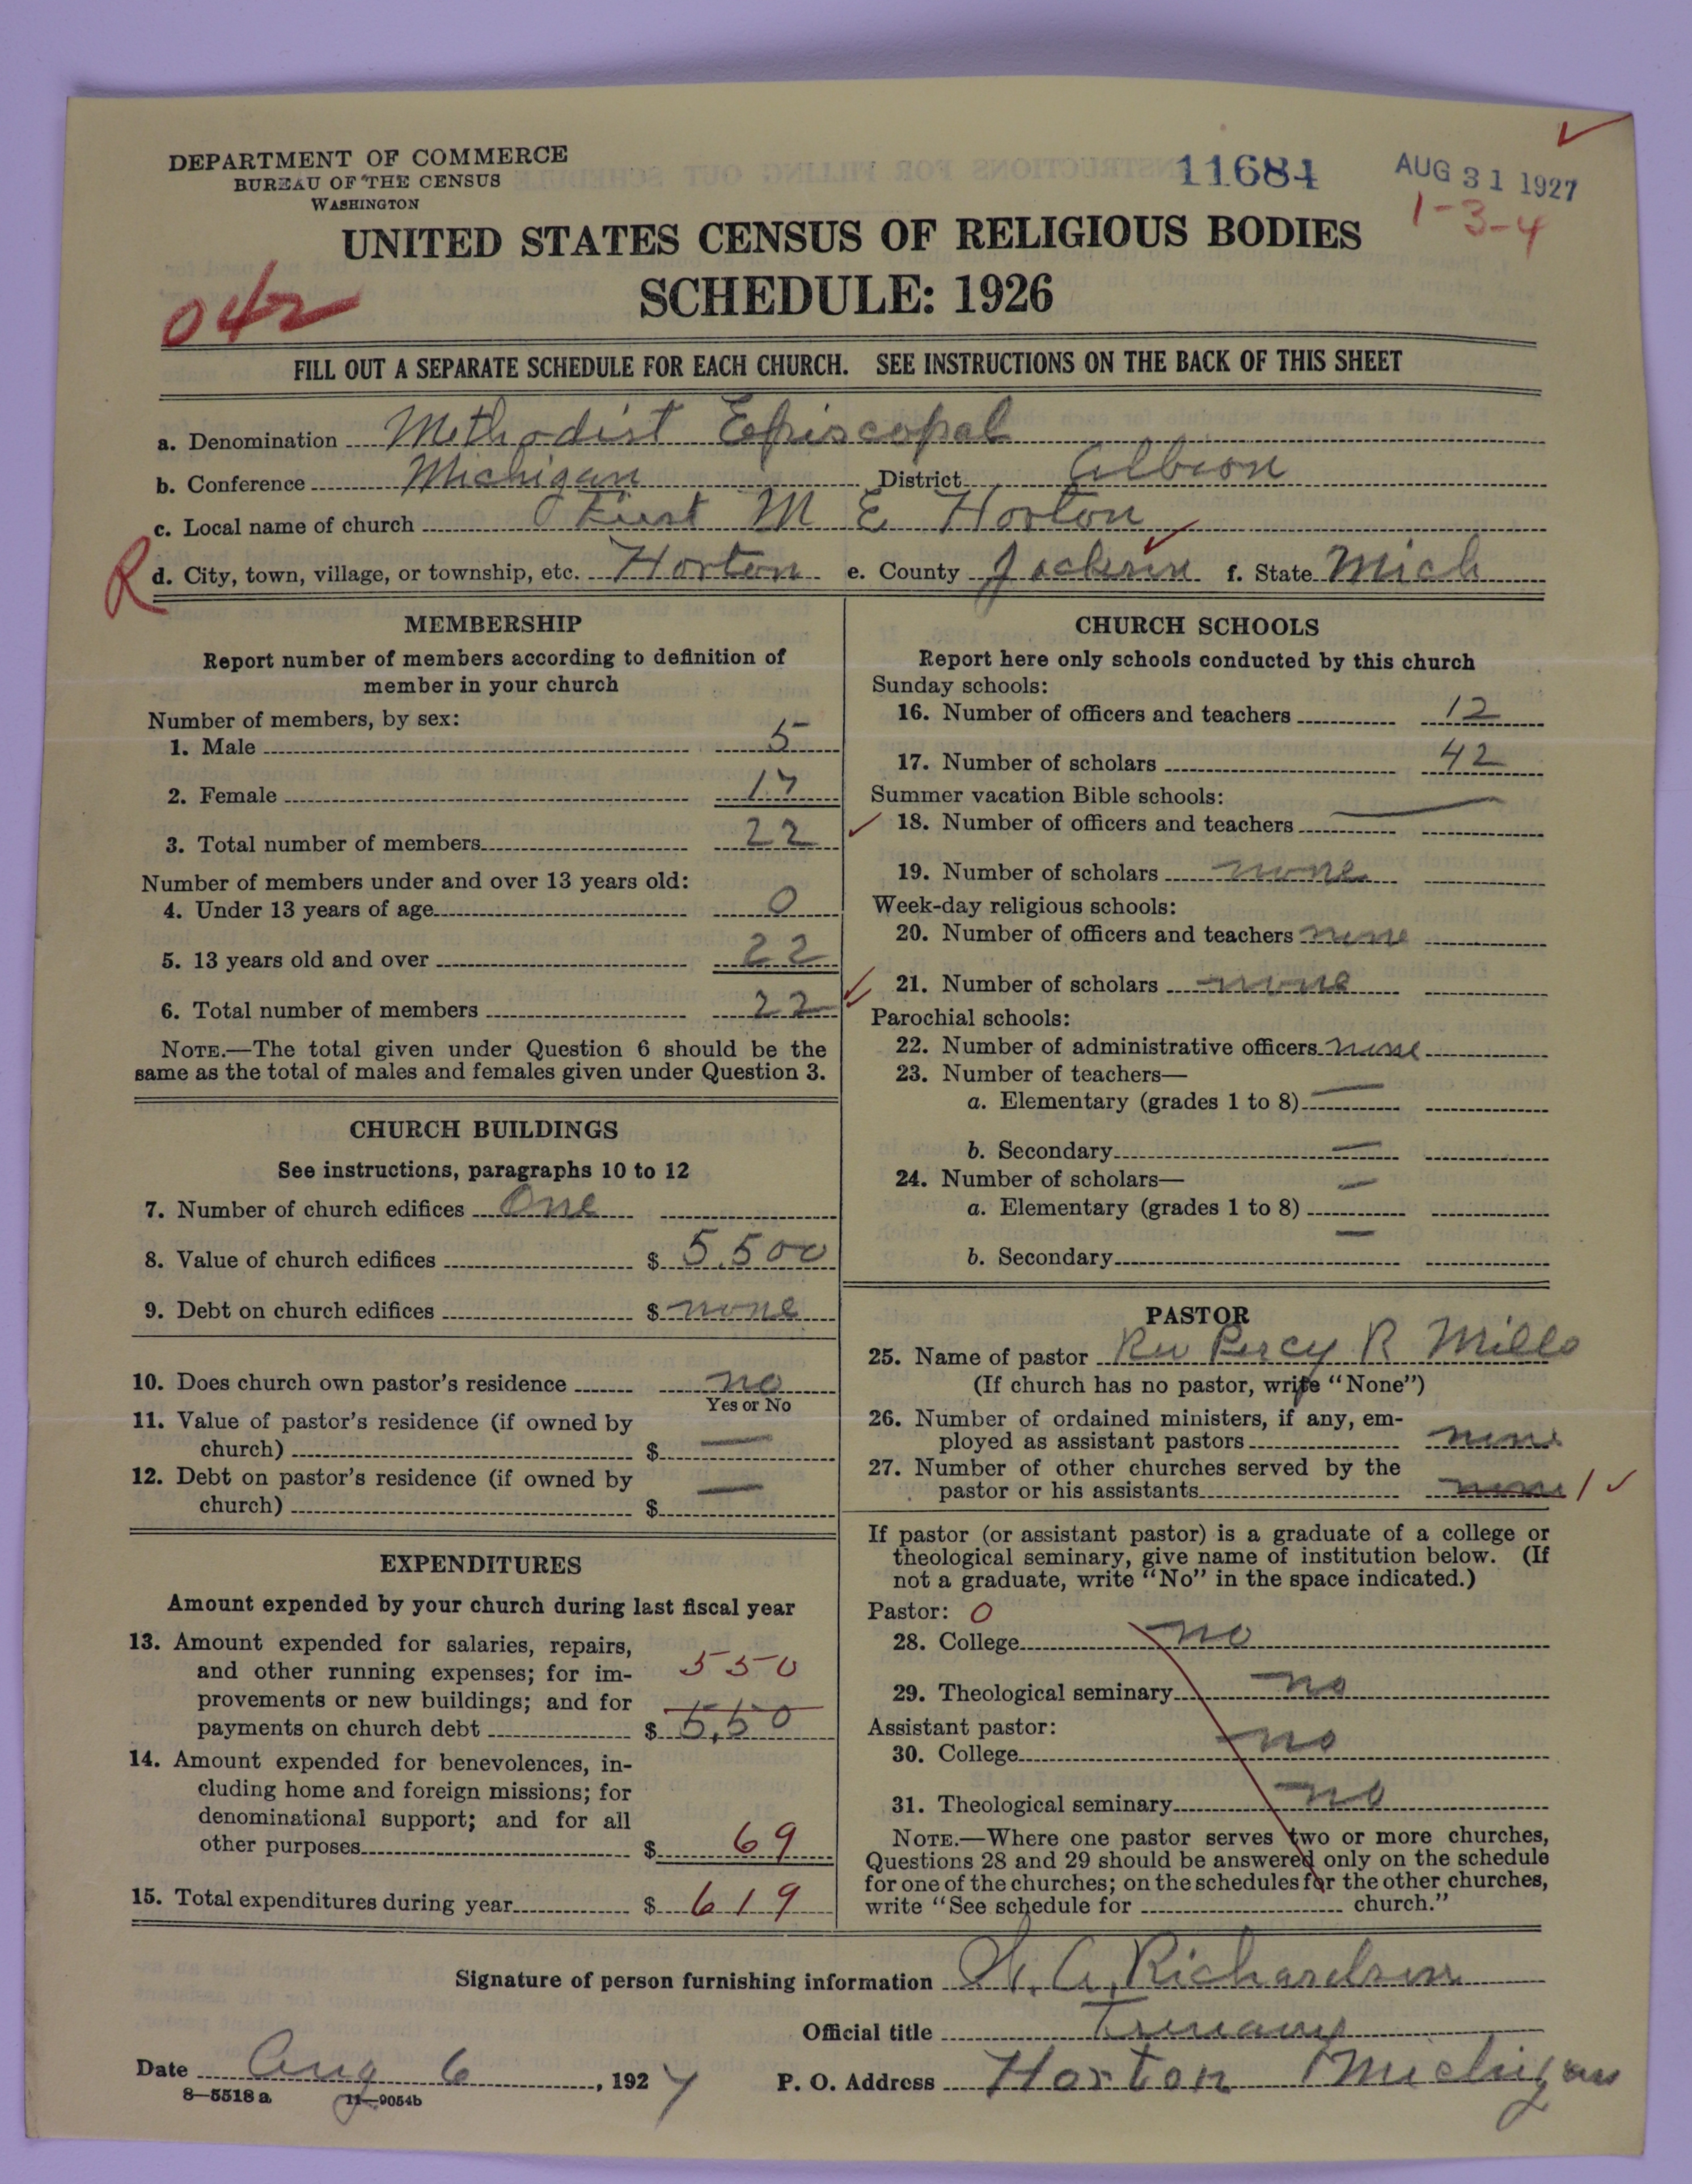 DEPARTMENT OF COMMERCE
BUREAU OF THE CENSUS
WASHINGTON
11684
AUG 31 1927
1-3-4
UNITED STATES CENSUS OF RELIGIOUS BODIES
SCHEDULE: 1926
042
FILL OUT A SEPARATE SCHEDULE FOR EACH CHURCH. SEE INSTRUCTIONS ON THE BACK OF THIS SHEET
a. Denomination Methodist Episcopal
b. Conference Michigan District Albion
c. Local name of church First M E Horton
R d. City, town, village, or township, etc. Horton e. County Jackson f. State Mich
MEMBERSHIP
Report number of members according to definition of
member in your church
Number of members, by sex:
1. Male 5
2. Female 17
3. Total number of members 22
Number of members under and over 13 years old:
4. Under 13 years of age 0
5. 13 years old and over 22
6. Total number of members 22
NOTE.—The total given under Question 6 should be the
same as the total of males and females given under Question 3.
CHURCH BUILDINGS
See instructions, paragraphs 10 to 12
7. Number of church edifices One
8. Value of church edifices $ 5,500
9. Debt on church edifices $ none
10. Does church own pastor's residence no
Yes or No
11. Value of pastor's residence (if owned by
church) $ —
12. Debt on pastor's residence (if owned by
church) $ —
EXPENDITURES
Amount expended by your church during last fiscal year
13. Amount expended for salaries, repairs,
and other running expenses; for im- 550
provements or new buildings; and for
payments on church debt $ 5,50
14. Amount expended for benevolences, in-
cluding home and foreign missions; for
denominational support; and for all
other purposes $ 69
15. Total expenditures during year $ 619
CHURCH SCHOOLS
Report here only schools conducted by this church
Sunday schools:
16. Number of officers and teachers 12
17. Number of scholars 42
Summer vacation Bible schools:
18. Number of officers and teachers —
19. Number of scholars none
Week-day religious schools:
20. Number of officers and teachers none
21. Number of scholars none
Parochial schools:
22. Number of administrative officers none
23. Number of teachers—
a. Elementary (grades 1 to 8) —
b. Secondary —
24. Number of scholars— —
a. Elementary (grades 1 to 8)
b. Secondary —
PASTOR
25. Name of pastor Rev Percy R Mills
(If church has no pastor, write "None")
26. Number of ordained ministers, if any, em-
ployed as assistant pastors none
27. Number of other churches served by the
pastor or his assistants none 1
If pastor (or assistant pastor) is a graduate of a college or
theological seminary, give name of institution below. (If
not a graduate, write "No" in the space indicated.)
Pastor: 0
28. College no
29. Theological seminary no
Assistant pastor:
30. College no
31. Theological seminary no
NOTE.—Where one pastor serves two or more churches,
Questions 28 and 29 should be answered only on the schedule
for one of the churches; on the schedules for the other churches,
write "See schedule for church."
Signature of person furnishing information A. Richardson
Official title
Date Aug 6, 1927 P. O. Address Horton Michigan
8—5518 a 11—9054b